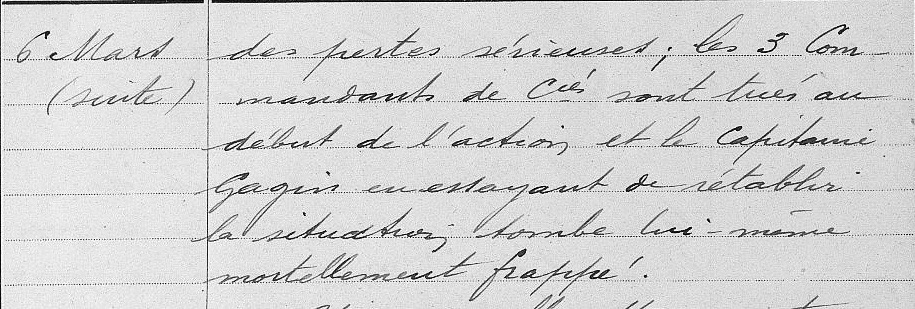 6 Mars des pertes sérieuses ; les 3 Com-
(suite) mandants de Ciés sont tués au
début de l'action, et le Capitaine
Gagin en essayant de rétablir
la situation, tombe lui-même
mortellement frappé.